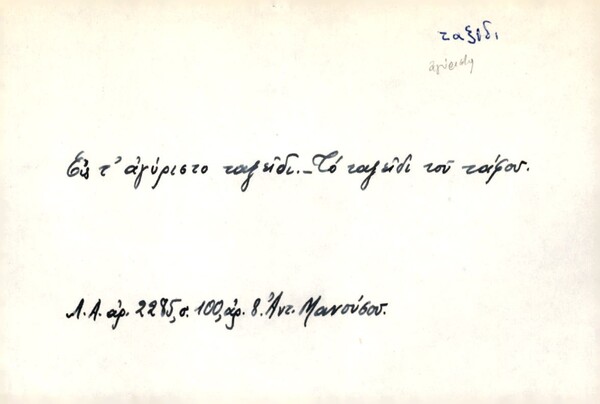 ταξίδι
ἀγύριστη
Εἰς τ' ἀγύριστο ταξεῖδι._Τό ταξεῖδι τοῦ τάφου.
Λ.Α. ἀρ. 2285, σ. 100, ἀρ. 8. Ἀντ. Μανούσου.